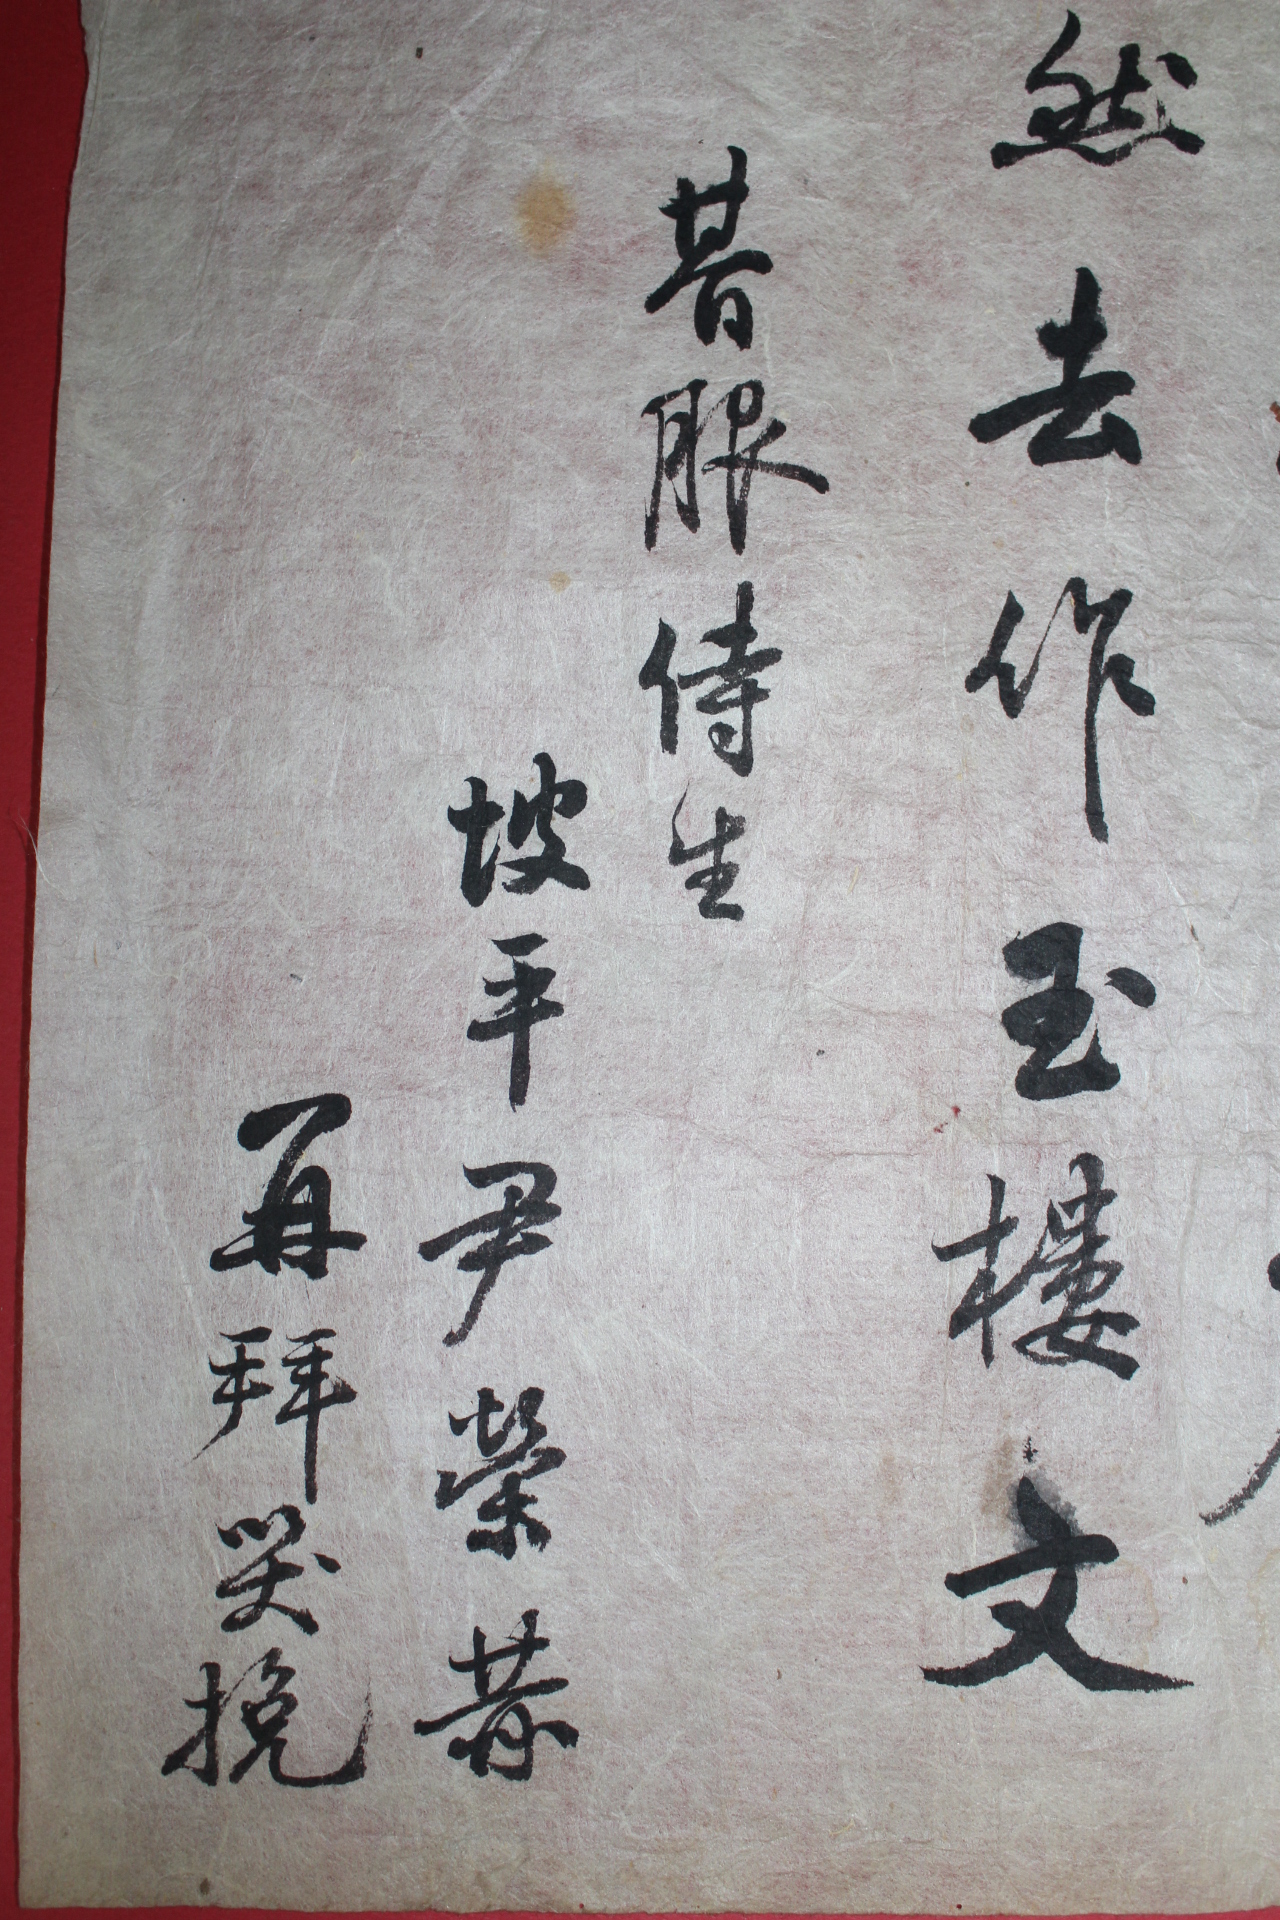 然去作玉樓文
朞服侍生
坡平尹榮恭
再拜哭挽